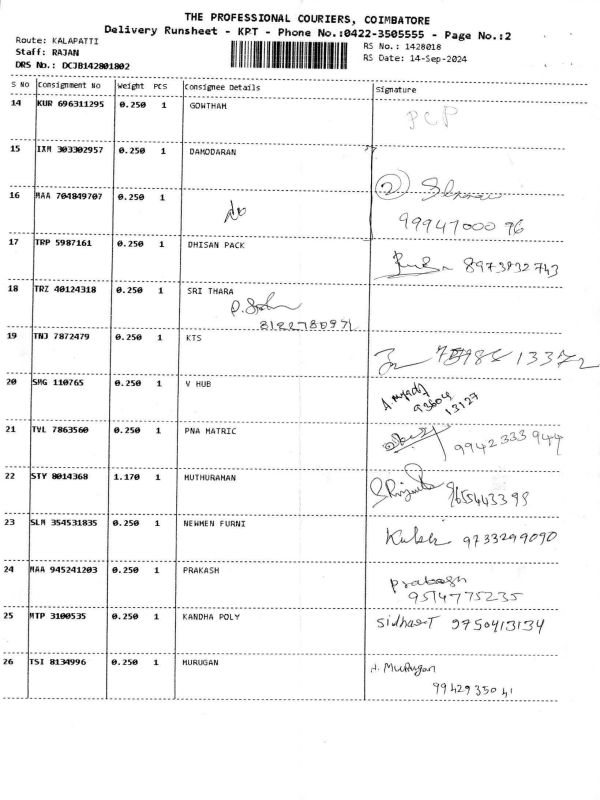 THE PROFESSIONAL COURIERS, COIMBATORE
Delivery Runsheet - KPT - Phone No.:0422-3505555 - Page No.:2
Route: KALAPATTI
RS No.: 1428018
Staff: RAJAN
RS Date: 14-Sep-2024
DRS No.: DCJB142801802
S No Consignment No Weight PCS Consignee Details Signature
14 KUR 696311295 0.250 1 GOWTHAM PCP
15 IXM 303302957 0.250 1 DAMODARAN
16 MAA 704849707 0.250 1 do 2
9994700076
17 TRP 5987161 0.250 1 DHISAN PACK 8973832743
18 TRI 40124318 0.250 1 SRI THARA
8122780971
19 TNJ 7872479 0.250 1 KTS
20 SMG 110765 0.250 1 V HUB
93604
13127
21 TVL 7863560 0.250 1 PNA MATRIC 9942333944
22 STY 8014368 1.170 1 MUTHURAMAN 9655443399
23 SLM 354531835 0.250 1 NEWMEN FURNI 9733299090
24 MAA 945241203 0.250 1 PRAKASH
9514775235
25 MTP 3100535 0.250 1 KANDHA POLY 9750413134
26 TSI 8134996 0.250 1 MURUGAN A. Murugan
9942935041